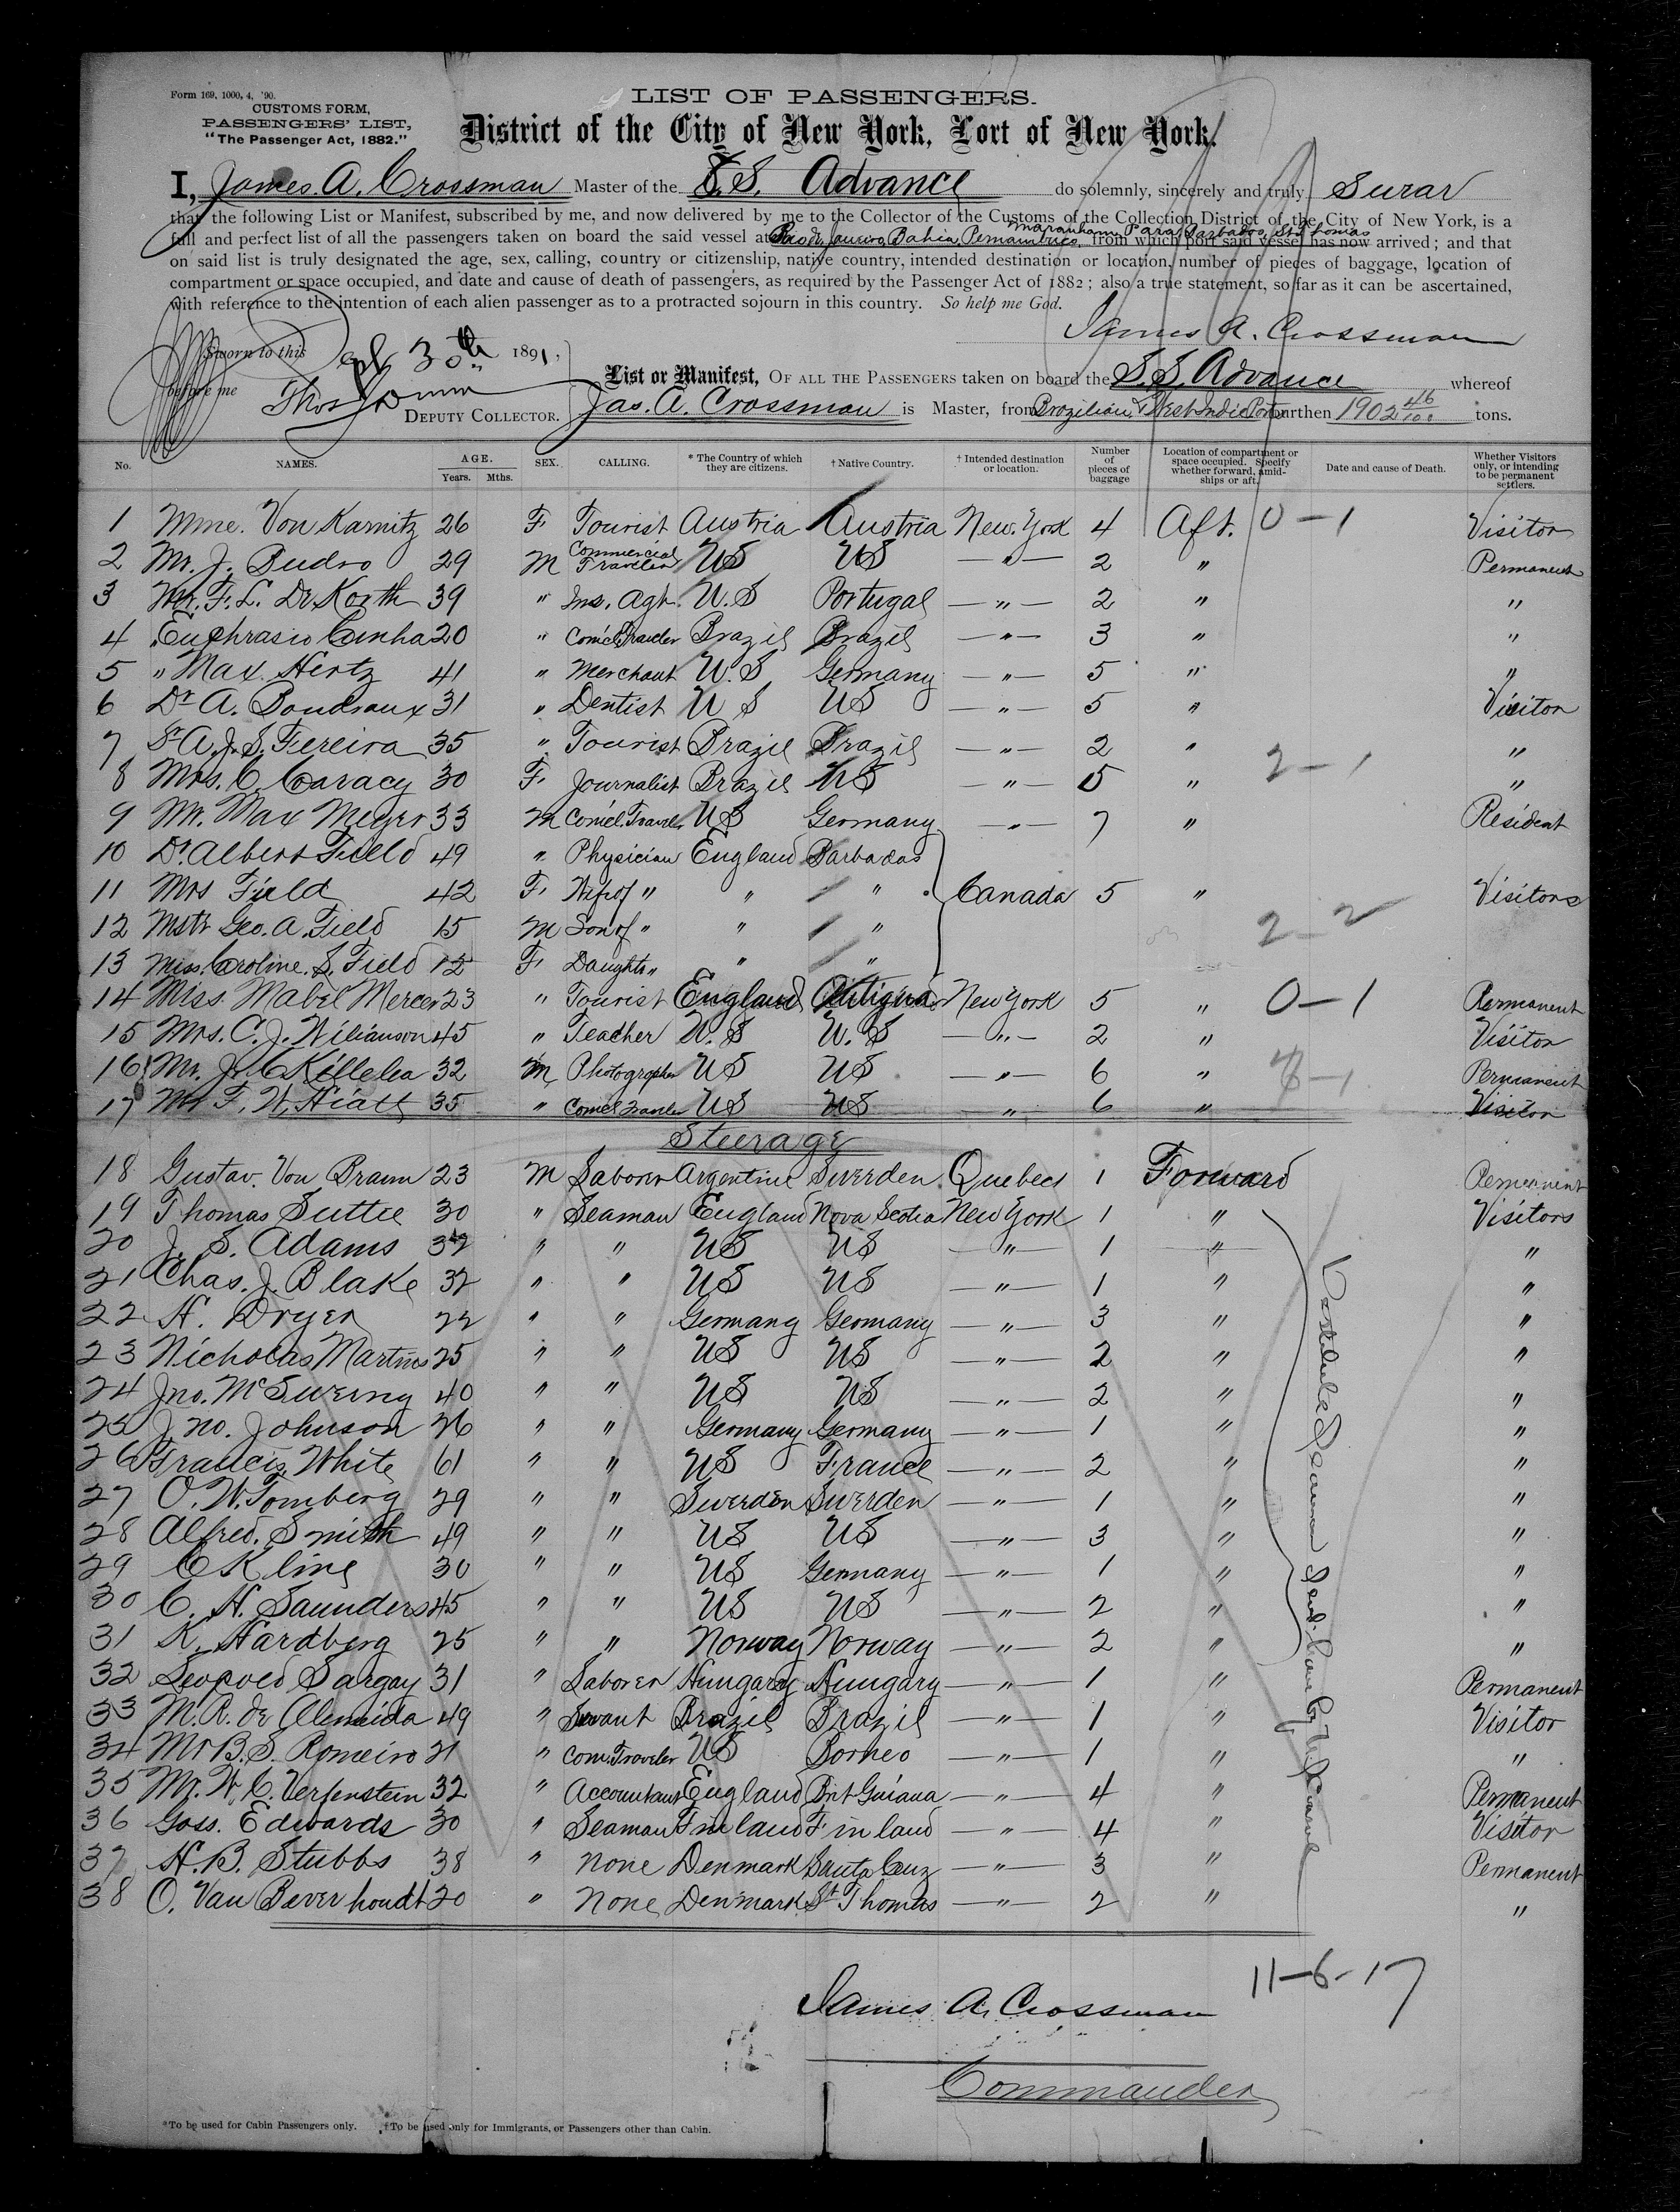 Form 169, 1000, 4, '90.
CUSTOMS FORM,
PASSENGERS' LIST,
"The Passenger Act, 1882."
LIST OF PASSENGERS.
District of the City of New York, Port of New York.
I, James A. Crossman Master of the S.S. Advance do solemnly, sincerely and truly Swear
that the following List or Manifest, subscribed by me, and now delivered by me to the Collector of the Customs of the Collection District of the City of New York, is a
Maranham, Para, Barbados, St Thomas
full and perfect list of all the passengers taken on board the said vessel at Rio de Janeiro, Bahia, Pernambuco, from which port said vessel has now arrived; and that
on said list is truly designated the age, sex, calling, country or citizenship, native country, intended destination or location, number of pieces of baggage, location of
compartment or space occupied, and date and cause of death of passengers, as required by the Passenger Act of 1882; also a true statement, so far as it can be ascertained,
with reference to the intention of each alien passenger as to a protracted sojourn in this country. So help me God.
James A. Crossman
Sworn to this 30th 1891,
before me Thos
DEPUTY COLLECTOR.
List or Manifest, OF ALL THE PASSENGERS taken on board the S.S. Advance whereof
Jas. A. Crossman is Master, from Brazilian & West Indie Ports burthen 1902 46/100 tons.
No. NAMES. AGE. Years. Mths. SEX. CALLING. * The Country of which they are citizens. † Native Country. † Intended destination or location. Number of pieces of baggage Location of compartment or space occupied. Specify whether forward, amidships or aft. Date and cause of Death. Whether Visitors only, or intending to be permanent settlers.
1 Mme. Von Karnitz 26 F Tourist Austria Austria New York 4 Aft. 0-1 Visitor
2 Mr. J. Budro 29 M Commercial Traveler US US — " — 2 " Permanent
3 Mr. F. L. De Korth 39 " Ins. Agt. U.S Portugal — " — 2 " "
4 " Euphrasio Cunha 20 " Com'cl Traveler Brazil Brazil — " — 3 " "
5 " Max Hertz 41 " Merchant U.S Germany — " — 5 " "
6 Dr A. Boudraux 31 " Dentist U S US — " — 5 " Visitor
7 Sr A. J. S. Fereira 35 " Tourist Brazil Brazil — " — 2 " "
2-1
8 Mrs. C. Caracy 30 F Journalist Brazil US — " — 5 " "
9 Mr. Max Meyer 33 M Com'cl. Traveler US Germany — " — 7 " Resident
10 Dr. Albert Field 49 " Physician England Barbados
11 Mrs Field 42 F Wife of " " " Canada 5 " Visitors
12 Mstr Geo. A. Field 15 M Son of " " " 2-2
13 Miss. Caroline. S. Field 12 F Daughter " " "
14 Miss. Mabel Mercer 23 " Tourist England Antigua New York 5 " 0-1 Permanent
15 Mrs. C. J. Wilianson 45 " Teacher U.S U.S — " — 2 " Visitor
16 Mr. J. McKillelea 32 M Photographer US US — " — 6 " Permanent
17 Mr F. W. Hiatt 35 " Comcl Traveler US US — " — 6 " Visitor
Steerage
18 Gustav. Von Braun 23 M Laborer Argentine Sweden Quebec 1 Forward Permanent
19 Thomas Suttie 30 " Seaman England Nova Scotia New York 1 " Visitors
20 J. S. Adams 32 " " US US — " — 1 " "
21 Chas. J. Blake 32 " " US US — " — 1 " "
22 H. Dryer 22 " " Germany Germany — " — 3 " "
23 Nicholas Martins 25 " " US US — " — 2 " "
24 Jno. McSwering 40 " " US US — " — 2 " "
25 Jno. Johnson 26 " " Germany Germany — " — 1 " "
26 Francis White 61 " " US France — " — 2 " "
27 O. W. Tomberg 29 " " Sweden Sweden — " — 1 " "
28 Alfred. Smith 49 " " US US — " — 3 " "
29 C Kline 30 " " US Germany — " — 1 " "
30 C. H. Saunders 45 " " US US — " — 2 " "
31 K. Hardberg 25 " " Norway Norway — " — 2 " "
32 Leopold Sargay 31 " Laborer Hungary Hungary — " — 1 " Permanent
33 M. R. de Almeida 49 " Servant Brazil Brazil — " — 1 " Visitor
34 Mr B. S. Romeiro 21 " Com. Traveler US Borneo — " — 1 " "
35 Mr. W. C. Verfenstein 32 " Accountant England Brit Guiana — " — 4 " Permanent
36 Goss. Edwards 30 " Seaman Finland Finland — " — 4 " Visitor
37 H. B. Stubbs 38 " None Denmark Santa Cruz — " — 3 " Permanent
38 O. Van Beverhoudt 20 " None Denmark St Thomas — " — 2 " "
Destitute Seamen
11-6-17
James A. Crossman
Commander
*To be used for Cabin Passengers only. †To be used only for Immigrants, or Passengers other than Cabin.